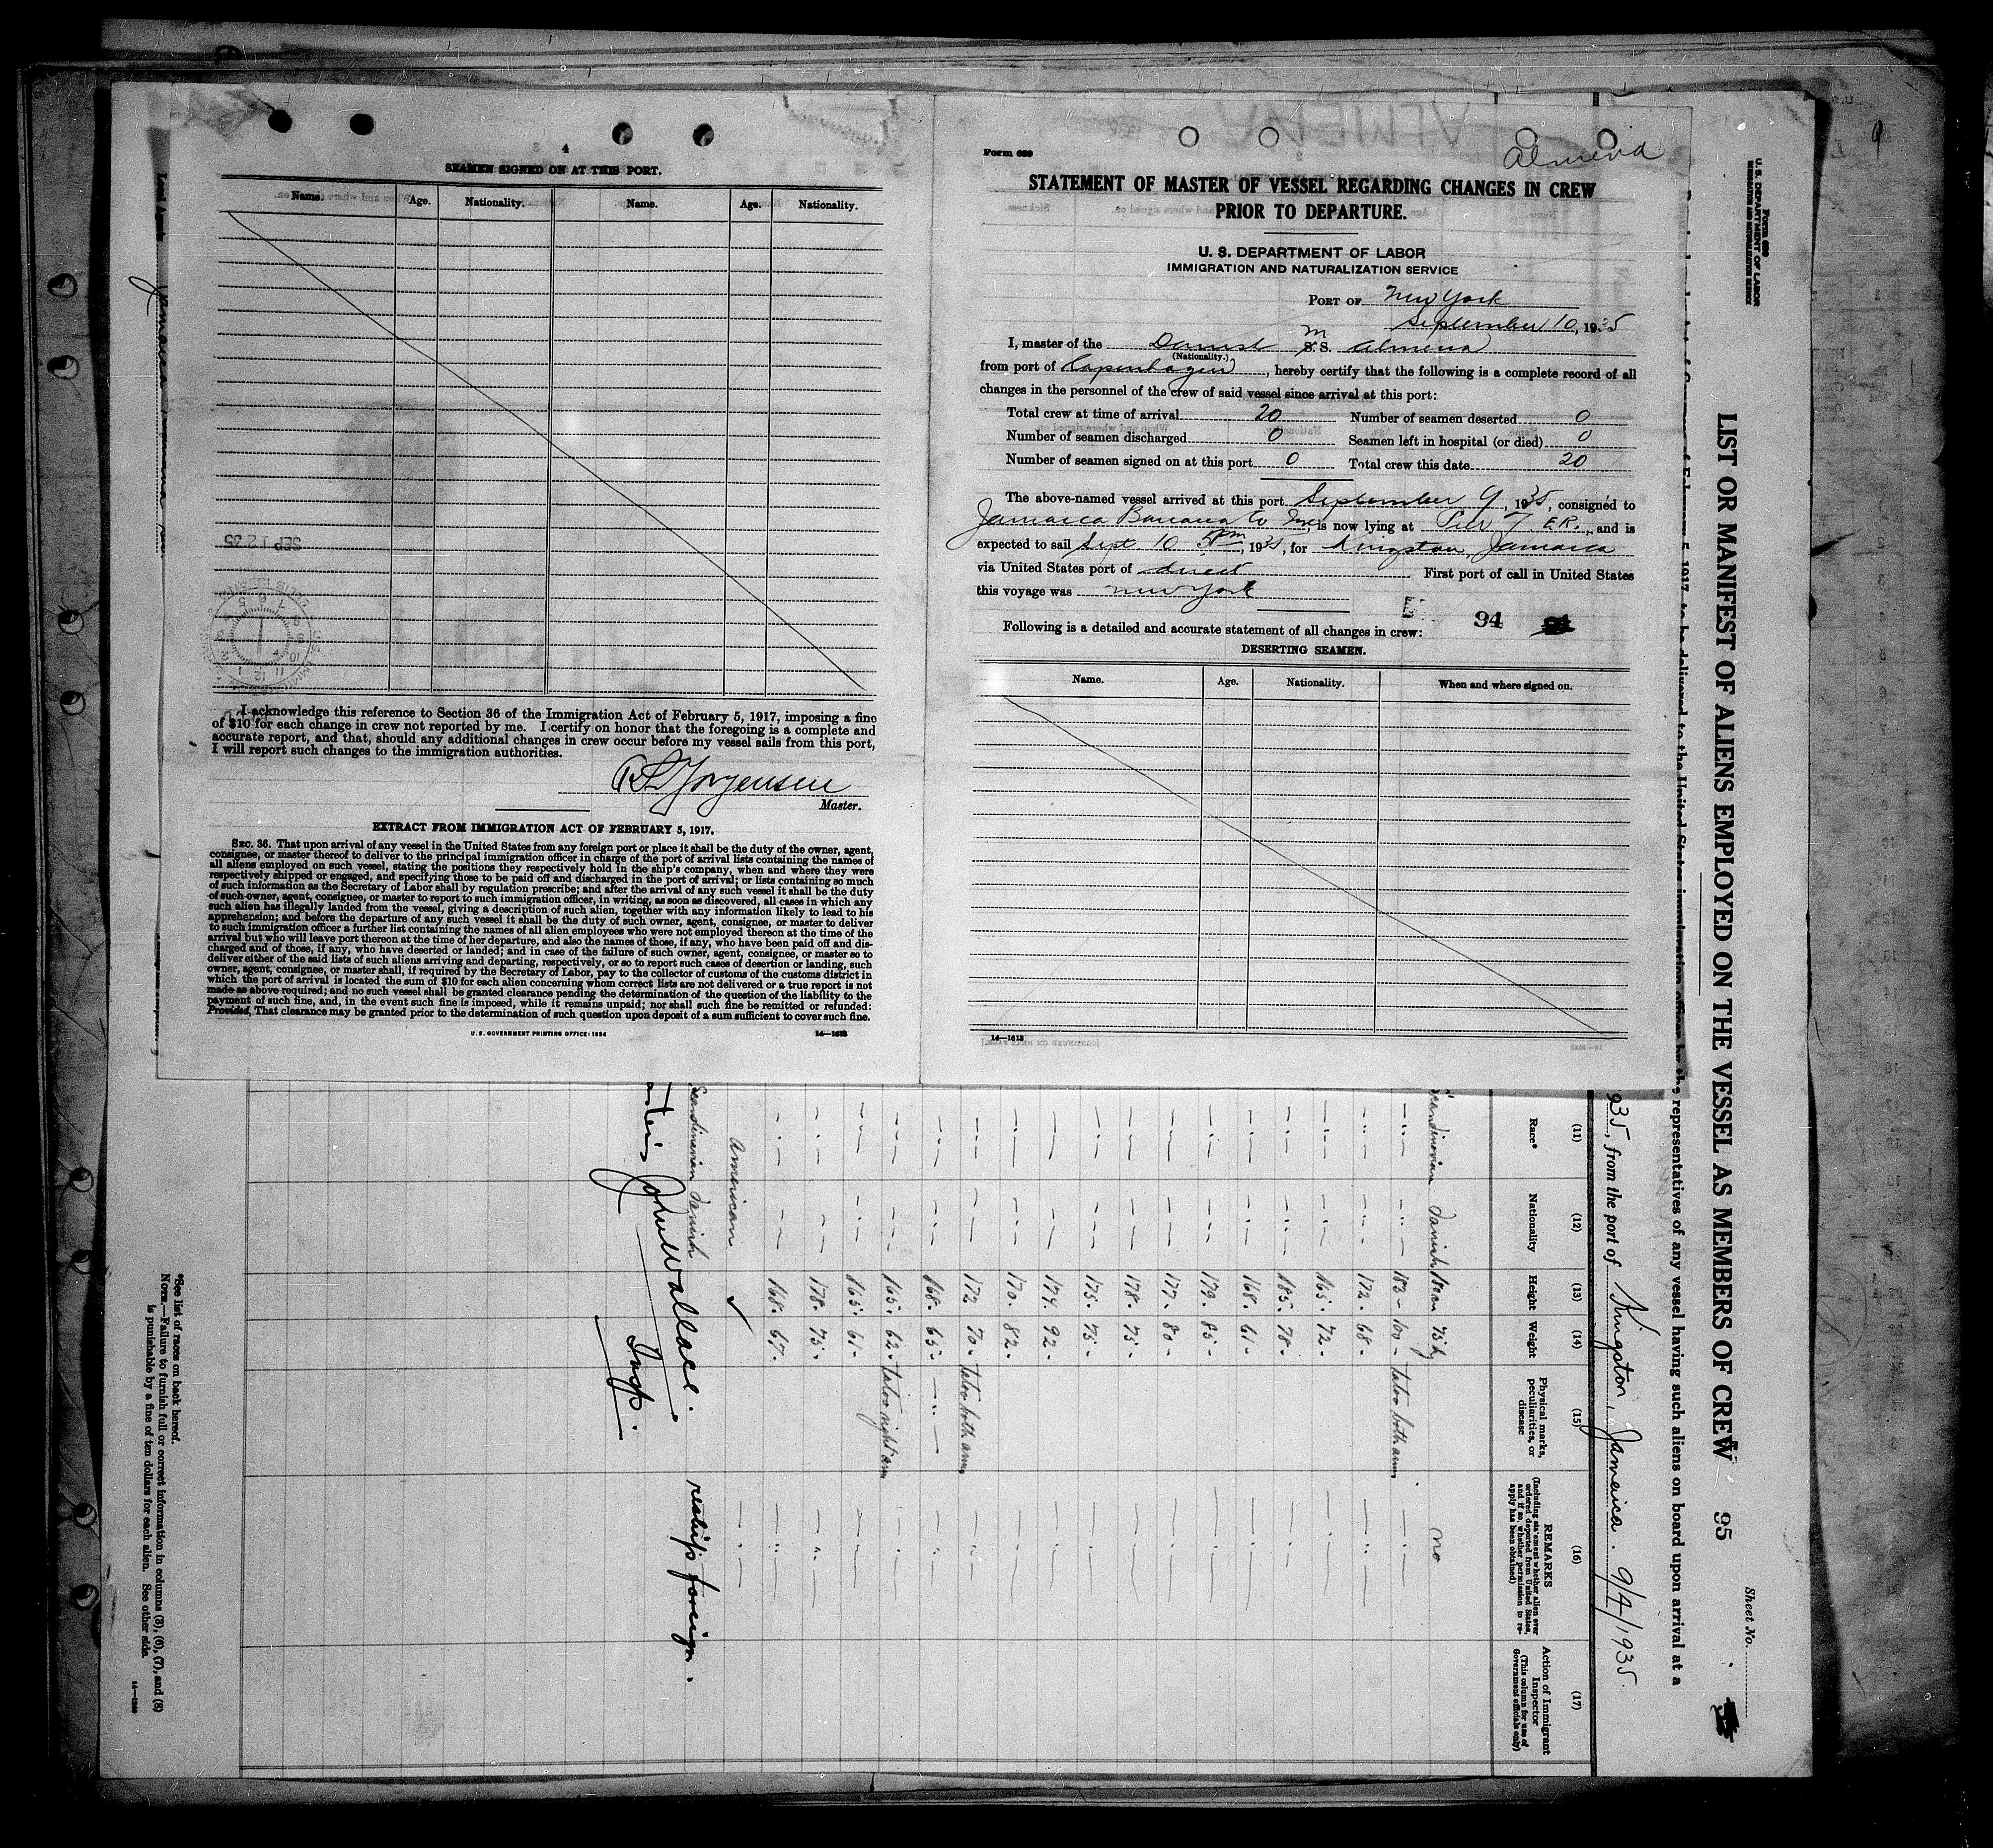 4
SEAMEN SIGNED ON AT THIS PORT.
Name. Age. Nationality. Name. Age. Nationality.
I acknowledge this reference to Section 36 of the Immigration Act of February 5, 1917, imposing a fine
of $10 for each change in crew not reported by me. I certify on honor that the foregoing is a complete and
accurate report, and that, should any additional changes in crew occur before my vessel sails from this port,
I will report such changes to the immigration authorities.
Jorgensen
Master.
EXTRACT FROM IMMIGRATION ACT OF FEBRUARY 5, 1917.
SEC. 36. That upon arrival of any vessel in the United States from any foreign port or place it shall be the duty of the owner, agent,
consignee, or master thereof to deliver to the principal immigration officer in charge of the port of arrival lists containing the names of
all aliens employed on such vessel, stating the positions they respectively hold in the ship's company, when and where they were
respectively shipped or engaged, and specifying those to be paid off and discharged in the port of arrival; or lists containing so much
of such information as the Secretary of Labor shall by regulation prescribe; and after the arrival of any such vessel it shall be the duty
of such owner, agent, consignee, or master to report to such immigration officer, in writing, as soon as discovered, all cases in which any
such alien has illegally landed from the vessel, giving a description of such alien, together with any information likely to lead to his
apprehension; and before the departure of any such vessel it shall be the duty of such owner, agent, consignee, or master to deliver
to such immigration officer a further list containing the names of all alien employees who were not employed thereon at the time of the
arrival but who will leave port thereon at the time of her departure, and also the names of those, if any, who have been paid off and dis-
charged and of those, if any, who have deserted or landed; and in case of the failure of such owner, agent, consignee, or master so to
deliver either of the said lists of such aliens arriving and departing, respectively, or so to report such cases of desertion or landing, such
owner, agent, consignee, or master shall, if required by the Secretary of Labor, pay to the collector of customs of the customs district in
which the port of arrival is located the sum of $10 for each alien concerning whom correct lists are not delivered or a true report is not
made as above required; and no such vessel shall be granted clearance pending the determination of the question of the liability to the
payment of such fine, and, in the event such fine is imposed, while it remains unpaid; nor shall such fine be remitted or refunded:
Provided, That clearance may be granted prior to the determination of such question upon deposit of a sum sufficient to cover such fine.
U. S. GOVERNMENT PRINTING OFFICE: 1934 14—1613
Form 689
Almena
STATEMENT OF MASTER OF VESSEL REGARDING CHANGES IN CREW
PRIOR TO DEPARTURE.
U. S. DEPARTMENT OF LABOR
IMMIGRATION AND NATURALIZATION SERVICE
PORT OF New York
September 10, 1935
I, master of the Danish M S. S. Almena
(Nationality.)
from port of Copenhagen, hereby certify that the following is a complete record of all
changes in the personnel of the crew of said vessel since arrival at this port:
Total crew at time of arrival 20 Number of seamen deserted 0
Number of seamen discharged 0 Seamen left in hospital (or died) 0
Number of seamen signed on at this port 0 Total crew this date 20
The above-named vessel arrived at this port September 9, 1935, consigned to
Jamaica Banana Co Inc, is now lying at Pier 7 ER., and is
expected to sail Sept 10 5 pm, 1935, for Kingston, Jamaica
via United States port of direct First port of call in United States
this voyage was New York
94
Following is a detailed and accurate statement of all changes in crew:
DESERTING SEAMEN.
Name. Age. Nationality. When and where signed on.
14—1613
SEP 12 35
U. S. DEPARTMENT OF LABOR
IMMIGRATION AND NATURALIZATION SERVICE
LIST OR MANIFEST OF ALIENS EMPLOYED ON THE VESSEL AS MEMBERS OF CREW 95
Sheet No.
representatives of any vessel having such aliens on board upon arrival at a
935, from the port of Kingston, Jamaica. 9/4/1935.
(11) (12) (13) (14) (15) (16) (17)
Race* Nationality Height Weight Physical marks, peculiarities, or disease REMARKS (Including statement whether alien ever ordered deported from United States, and if so, whether permission to re-apply has been obtained) Action of Immigrant Inspector (This column for use of Government officials only)
Scandinavian Danish 75 kg no
183 - 100 - Tatoo both arms
172 - 68 -
165 - 72 -
185 - 78 -
168 - 61 -
179 - 85 -
177 - 80 -
178 - 75 -
175 - 75 -
174 - 92 -
170 - 82 -
172 70 - Tatoo both arms
168 - 65 -
165 - 62 - Tatoo right arm
165 - 61 -
178 - 75 -
168 - 67 -
American
Scandinavian Danish
John Wallace.
Insp.
foreign.
*See list of races on back hereof.
NOTE.—Failure to furnish full or correct information in columns (3), (6), (7), and (8)
is punishable by a fine of ten dollars for each alien. See other side.